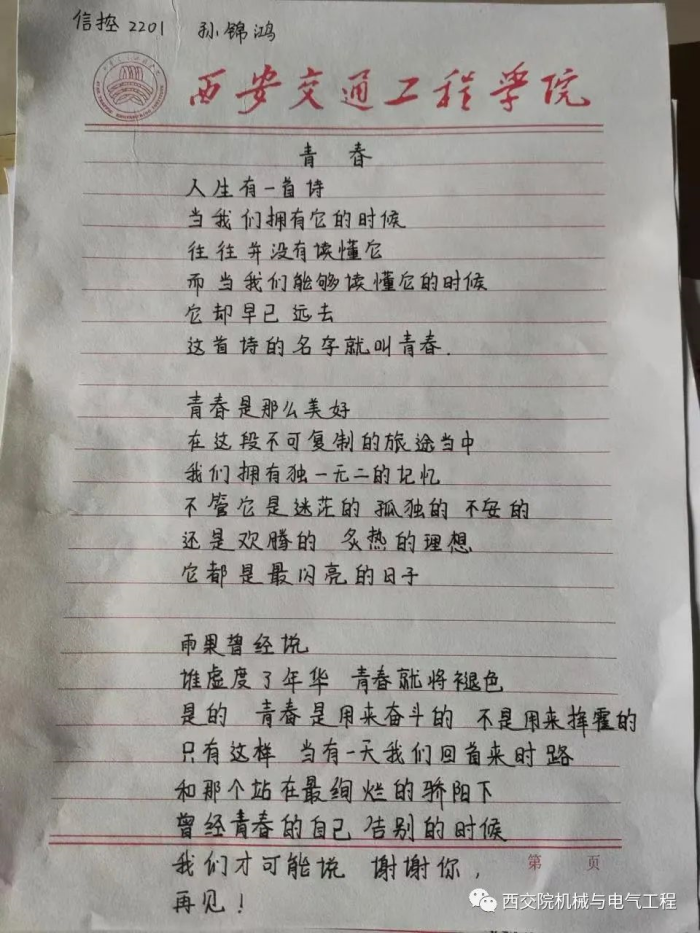 信控2201 孙锦鸿
西安交通工程学院
青 春
人生有一首诗
当我们拥有它的时候
往往并没有读懂它
而当我们能够读懂它的时候
它却早已远去
这首诗的名字就叫青春.
青春是那么美好
在这段不可复制的旅途当中
我们拥有独一无二的记忆
不管它是迷茫的 孤独的 不安的
还是欢腾的 炙热的 理想
它都是最闪亮的日子
雨果曾经说
谁虚度了年华 青春就将褪色
是的 青春是用来奋斗的 不是用来挥霍的
只有这样 当有一天我们回首来时路
和那个站在最绚烂的骄阳下
曾经青春的自己 告别的时候
我们才可能说 谢谢你,
再见!
第 页
西交院机械与电气工程